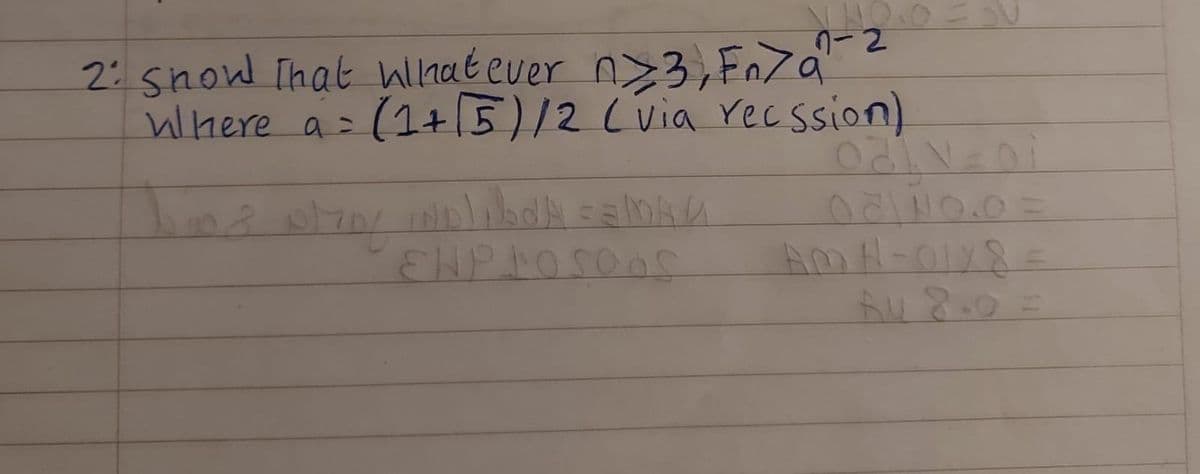 2: Show That Whatever n≥3, Fn>a^n-2
Where a = (1+√5)/2 (via recssion)